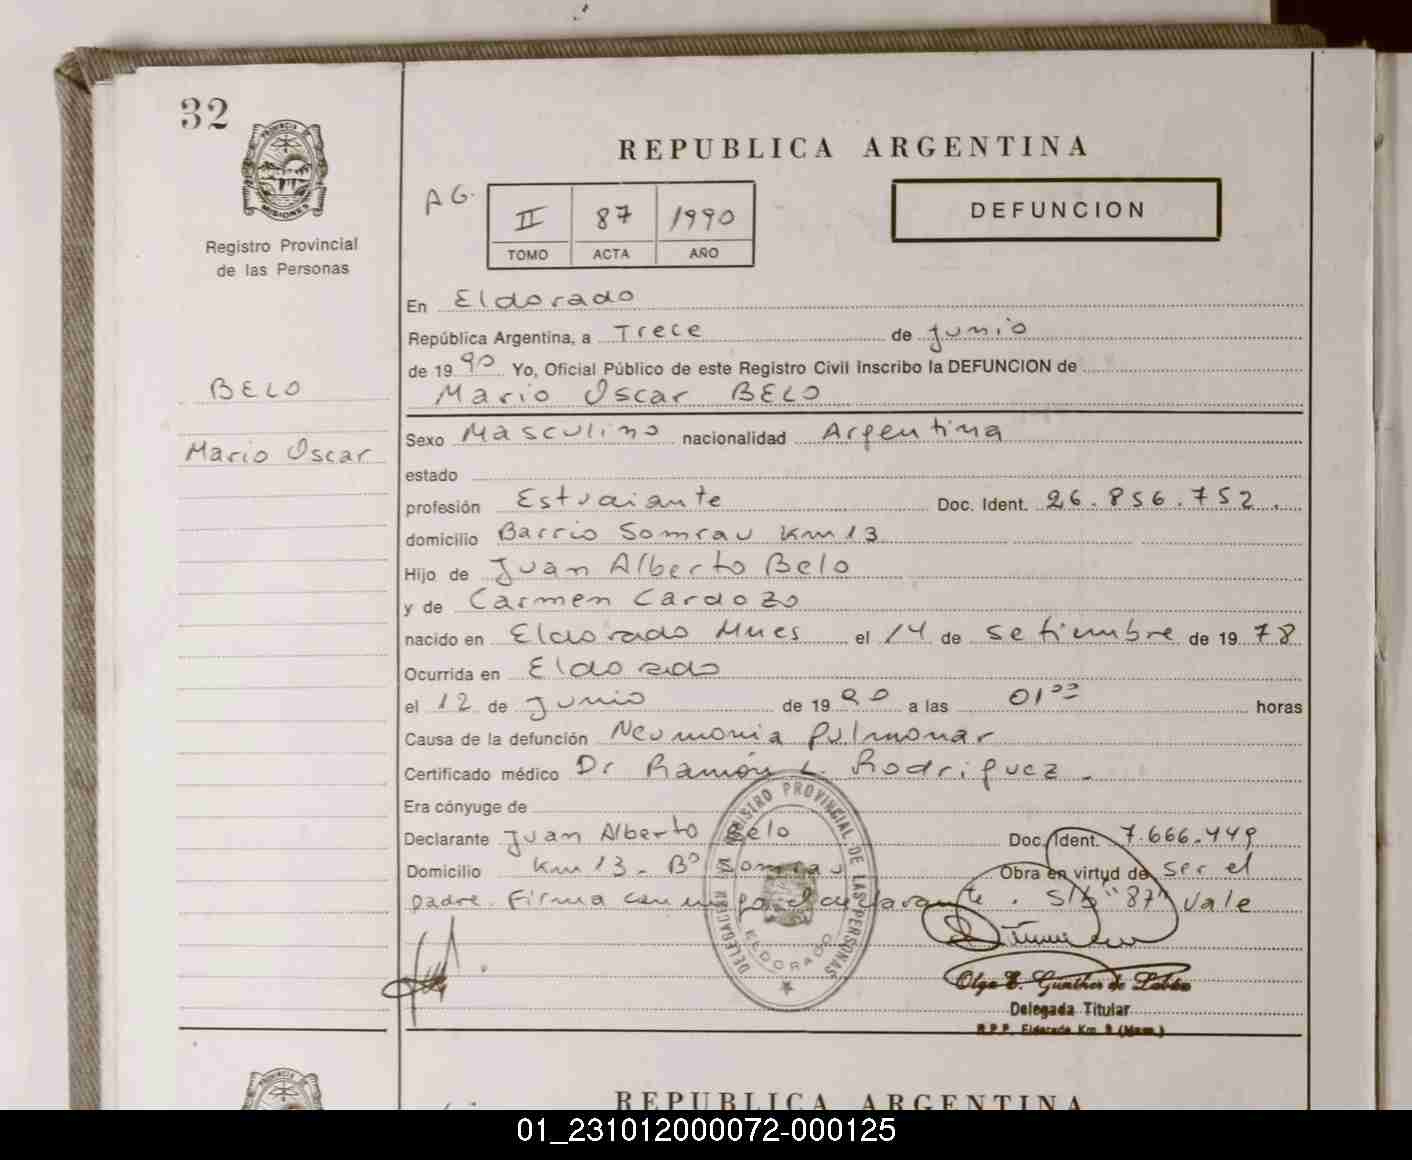 32
PROVINCIA DE
MISIONES
Registro Provincial
de las Personas
BELO
Mario Oscar
REPUBLICA ARGENTINA
AG.
II 87 1990
TOMO ACTA AÑO
DEFUNCION
En Eldorado
República Argentina, a Trece de junio
de 1990 Yo, Oficial Público de este Registro Civil inscribo la DEFUNCION de
Mario Oscar BELO
Sexo Masculino nacionalidad Argentina
estado
profesión Estudiante Doc. Ident. 26.856.752.
domicilio Barrio Somrau Km 13
Hijo de Juan Alberto Belo
y de Carmen Cardozo
nacido en Eldorado Mnes el 14 de setiembre de 1978
Ocurrida en Eldorado
el 12 de junio de 1990 a las 01ºº horas
Causa de la defunción Neumonia Pulmonar
Certificado médico Dr Ramón L. Rodriguez.
Era cónyuge de
Declarante Juan Alberto Belo Doc. Ident. 7.666.449
Domicilio Km 13. Bº Somrau Obra en virtud de ser el
padre. Firma conmigo el declarante. S/b "87" Vale
DELEGACION REGISTRO PROVINCIAL DE LAS PERSONAS
ELDORADO
Olga Gunther de
Delegada Titular
R.P.P. Eldorado Km. 9 (Mnes.)
REPUBLICA ARGENTINA
01_231012000072-000125